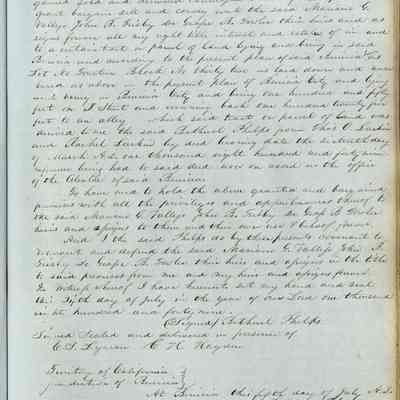 gained sold and
grant bargain sell and convey unto the said Mariano G.
Vallejo John B. Frisby De Grape A. Fowler their heirs and as
signs forever all my right title interest and estate of in and
to a certain tract or parcel of land lying and being in said
Benicia and according to the present plan of said Benicia City
Lot No fourteen Block No thirty two as laid down and num
bered as above in the present plan of Benicia City and lying
and being in Benicia City and being one hundred and fifty
feet on I Street and running back one hundred twenty five
feet to an alley which said tract or parcel of land was
derived to me the said Bethuel Phelps from Thos O. Larkin
and Rachel Larkin by deed bearing date the
of March A.D. one thousand eight hundred and forty nine
reference being had to said deed now on record in the office
of the Alcalde of said Benicia
To have and to hold the above granted and bargained
premises with all the privileges and appurtenances thereof to
the said Mariano G. Vallejo John B. Frisby De Grape A. Fowler
heirs and assigns to them and their own use & behoof forever.
And I the said Phelps do by these presents covenant to
warrant and defend the said Mariano G. Vallejo John B.
Frisby De Grape A. Fowler their heirs and assigns in the title
to said premises from me and my heirs and assigns forever.
In witness whereof I have hereunto set my hand and seal
this fifth day of July in the year of our Lord one thousand
eight hundred and forty nine.
(Signed) Bethuel Phelps
Signed Sealed and delivered in presence of
C. S. Lyman C. H. Hayden
Territory of California }
Jurisdiction of Benicia }
At Benicia this fifth day of July A.D.